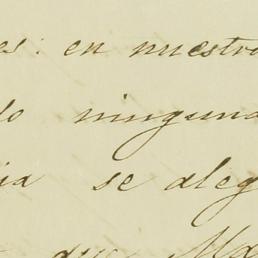 es: en nuestro
do ninguna
ia se aleg
que Ma